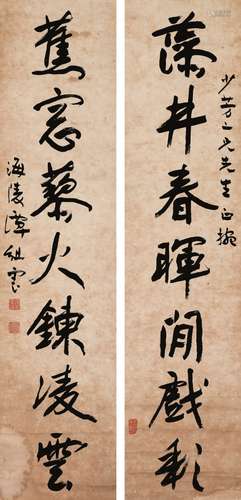 少芳二兄先生正腕
藻井春暉閒戲彩
蕉窓藜火鍊凌雲
海陵譚組雲